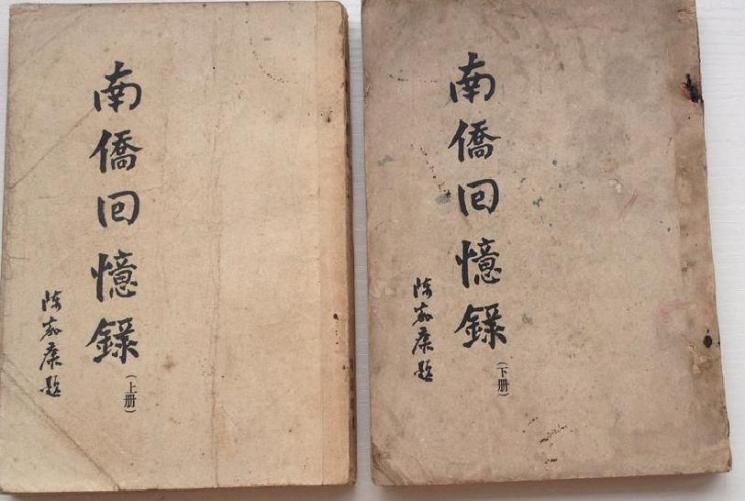 南僑回憶錄
(上册)
陳嘉庚題
南僑回憶錄
(下册)
陳嘉庚題